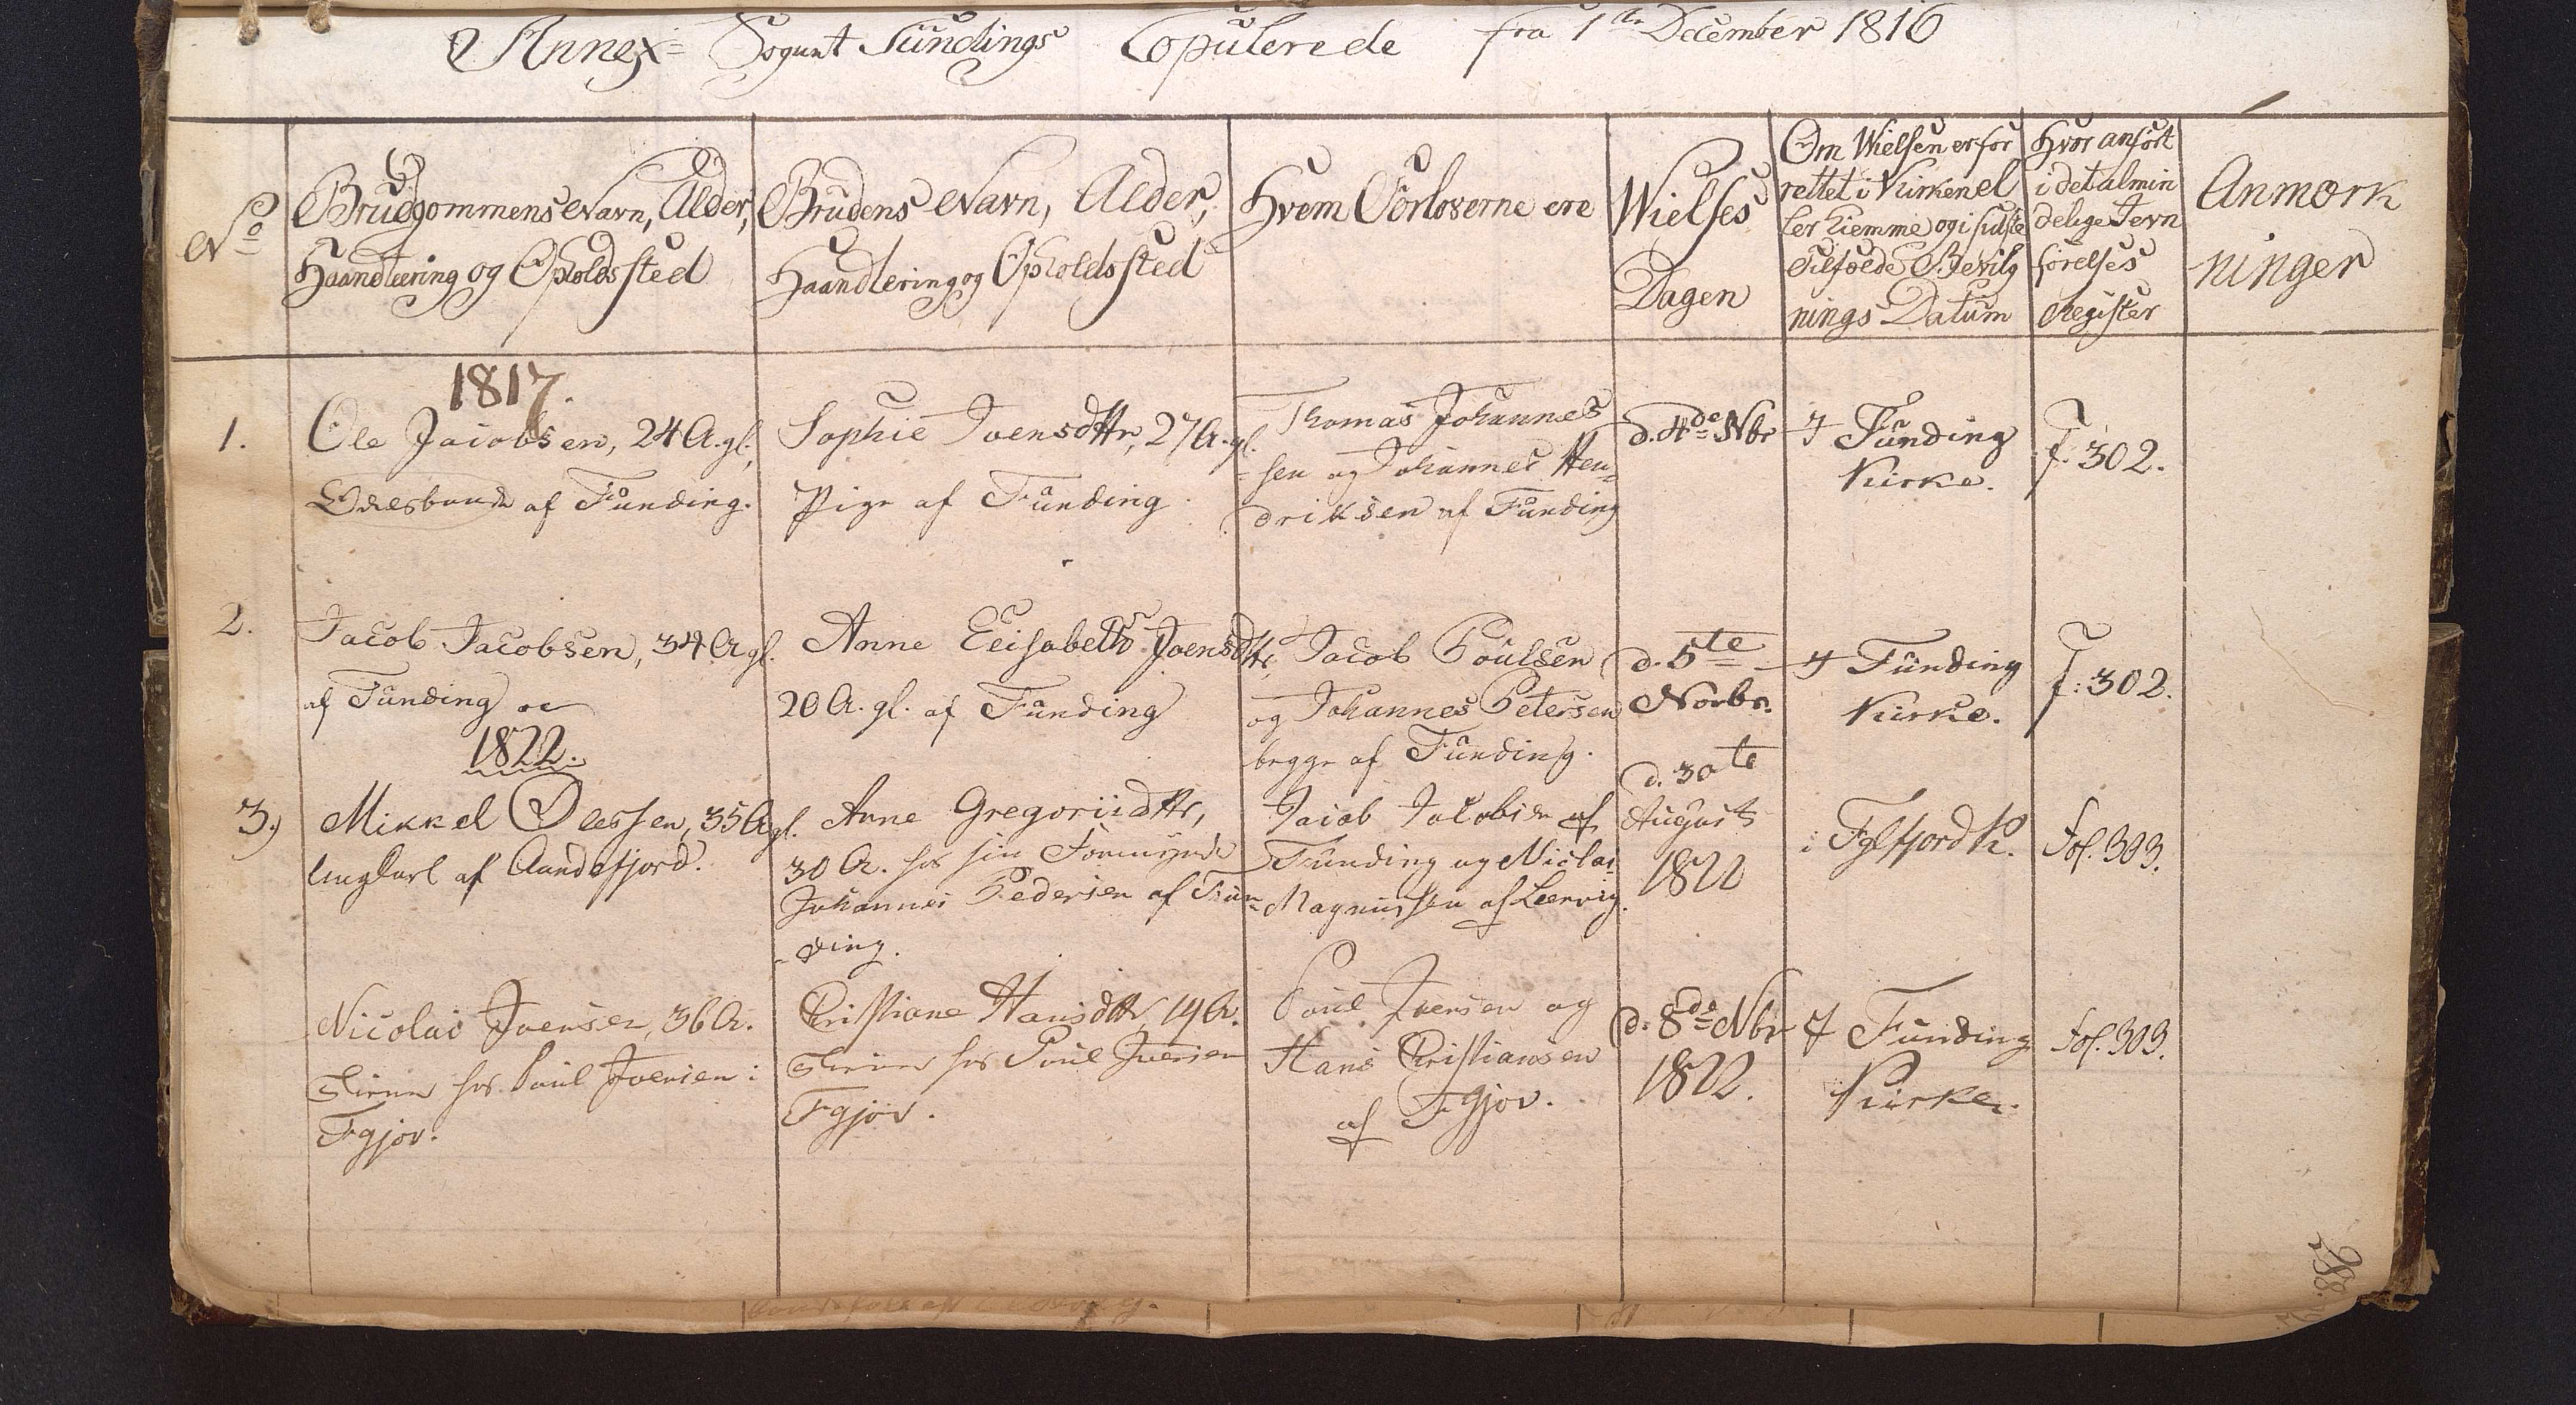 Annex- Sognet Fundings Copulerede fra 1ste December 1816
No
Brudgommens Navn, Alder,
Haandtering og Opholdssted
Brudens Navn, Alder,
Haandtering og Opholdssted
Hvem Forloverne ere
Wielses
Dagen
Om Wielsen er for
rettet i Kirken el
ler hiemme og i sidste
Tilfælde Bevilg
nings Datum
Hvor anført
i det almin
delige Jevn
førelses
Register
Anmærk
ninger
1817.
1.
Ole Jacobsen, 24 A. gl.,
Odelsbonde af Funding.
Sophie Joensdttr, 27 A. gl.
Pige af Funding
Thomas Johannes
sen og Johannes Hen
driksen af Funding
d. 4de Nbr
I Funding
Kirke.
f. 302.
2.
Jacob Jacobsen, 34 A gl.
af Funding
Anne Elisabeth Joensdttr,
20 A. gl. af Funding
Jacob Poulsen
og Johannes Petersen
begge af Funding.
d. 5te
Novbr.
I Funding
Kirke.
f: 302.
1822.
3.)
Mikkel Olessen, 35 A gl.
Ungkarl af Andefjord.
Anne Gregoriidttr,
30 A. hos sin Formynder
Johannes Pedersen af Fun-
-ding.
Jacob Jacobsen af
Funding og Niclai
Magnussen af Leervig.
d. 30te
August
1822
i Fglfjord K.
Fol. 303.
Nicolai Joensen, 36 A.
tiener hos Poul Joensen i
Fgjov.
Christiane Hansdttr, 19 A.
tiener hos Poul Joensen
Fgjov.
Poul Joensen og
Hans Christiansen
af Fgjov.
d: 8de Nbr
1822.
I Funding
Kirke.
Fol. 303.